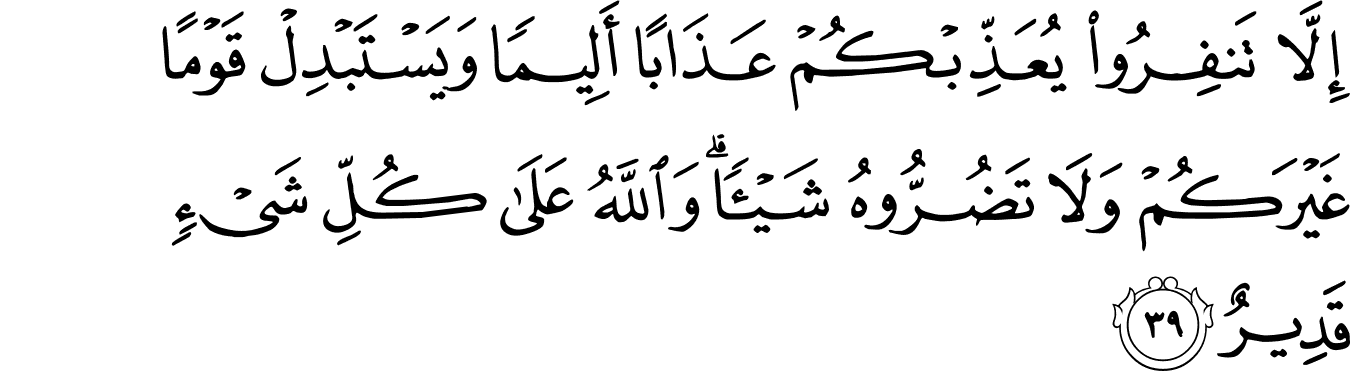 إِلَّا تَنفِرُوا۟ يُعَذِّبْكُمْ عَذَابًا أَلِيمًا وَيَسْتَبْدِلْ قَوْمًا
غَيْرَكُمْ وَلَا تَضُرُّوهُ شَيْـًٔا ۗ وَٱللَّهُ عَلَىٰ كُلِّ شَىْءٍ
قَدِيرٌ ٣٩